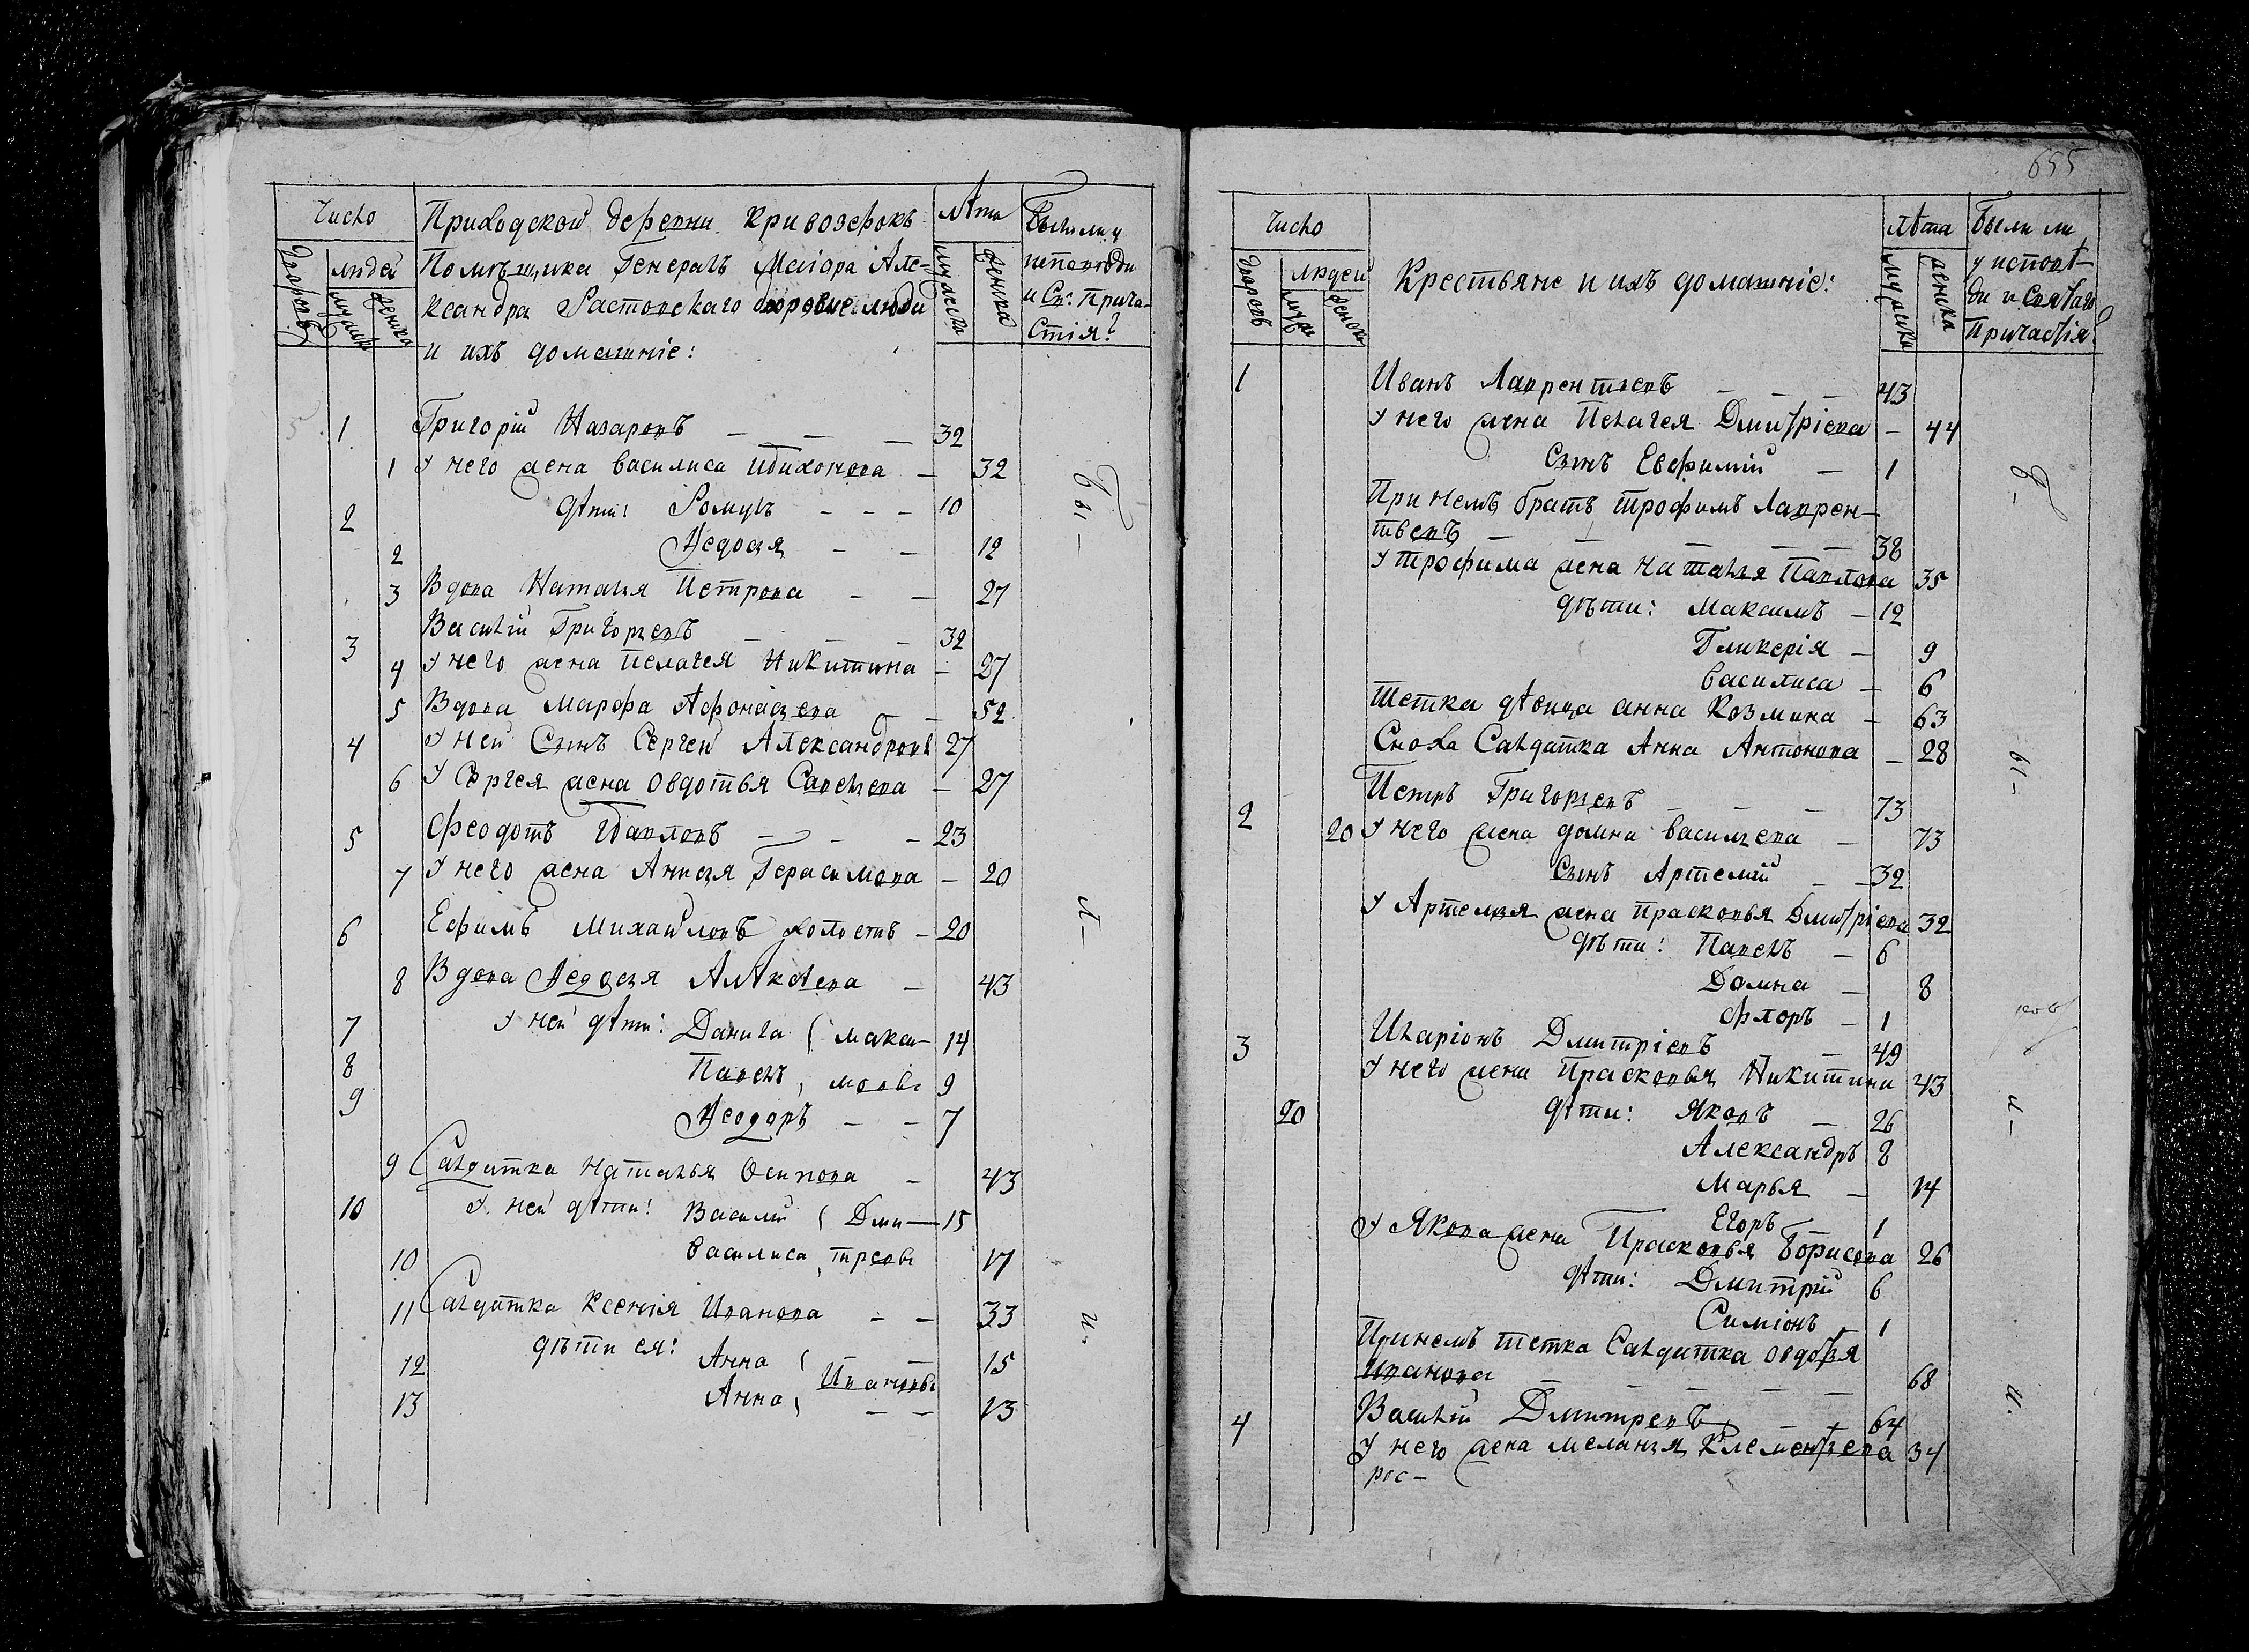 Число
Приходской деревни Кривозерокъ
Лѣта
Были ли у
дворовъ
людей
Помѣщика Генералъ Маіора Але-
мужеска
женска
исповѣди
мужеска
женска
ксандра Растовскаго дворовые люди
и Св: Прича-
стія?
и ихъ домашніе:
1 Григорій Назаровъ — — — 32
1 У него жена Василиса Тихонова — 32
2 дѣти: Романъ — — — 10
2 Ѳедосья — — 12
3 Вдова Наталья Петрова — — 27
3 Василій Григорьевъ — — — 32
4 У него жена Пелагея Никитина — 27
5 Вдова Марфа Афонасьева — — 52
4 У ней Сынъ Сергей Александровъ 27
6 У Сергея жена Овдотья Савельева — 27
5 Феодотъ Павловъ — — — 23
7 У него жена Анисья Герасимова — 20
6 Ефимъ Михайловъ холостъ — 20
8 Вдова Ѳедосья Алѣксѣева — 43
7 У ней дѣти: Данила ( Макси- 14
8 Павелъ, мовы 9
9 Ѳеодоръ — — 7
9 Салдатка Наталья Осипова — 43
10 У ней дѣти: Василій ( Дми- 15
10 Василиса, треевы 17
11 Салдатка Ксенія Иванова — — 33
12 дѣти ея: Анна ( — 15
Ивановы
13 Анна, — — 13
бы-
л-
и.
655
Число
Лѣта
Были ли
дворовъ
людей
Крестьяне и ихъ домашніе:
мужеска
женска
у исповѣ-
мужеска
женска
ди и Святаго
Причастія?
1 Иванъ Лаврентьевъ — — — 43
У него жена Пелагея Дмитріева — 44
Сынъ Евфимій — 1
При немъ братъ Трофимъ Лаврен-
тьевъ — — — — 38
У Трофима жена Наталья Павлова 35
дѣти: Максимъ — 12
Гликерія — 9
Василиса — 6
Тетка дѣвица Анна Козмина — 63
Сноха Салдатка Анна Антонова — 28
2 Петръ Григорьевъ — — — 73
20 У него жена Домна Васильева — 73
Сынъ Артемій — — 32
У Артемья жена Прасковья Дмитріева 32
дѣти: Павелъ — 6
Домна — 8
Флоръ — 1
3 Иларіонъ Дмитріевъ — 49
У него жена Прасковья Никитина 43
20 дѣти: Яковъ — 26
Александръ 8
Марья — 14
Егоръ — 1
У Якова жена Прасковья Борисова 26
дѣти: Дмитрій 6
Симіонъ 1
При немъ тетка Салдатка Овдотья
Иванова — — — — — 68
4 Василій Дмитревъ — — 64
У него жена Меланья Клементьева 34
рос-
б-
ы-
л-
и.